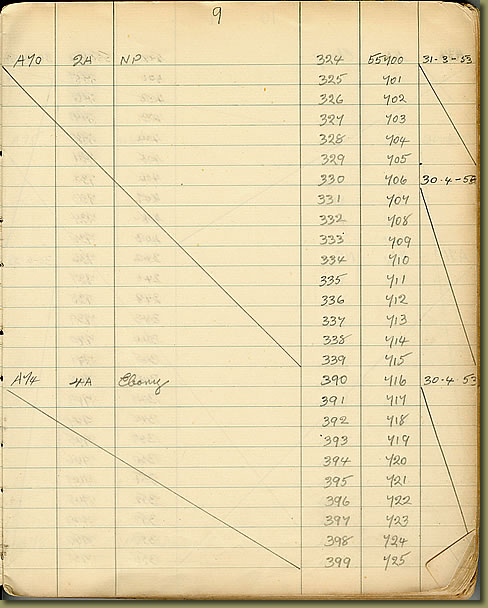 9
A70 2A NP 324 55700 31-3-53
325 701
326 702
327 703
328 704
329 705
330 706 30-4-53
331 707
332 708
333 709
334 710
335 711
336 712
337 713
338 714
339 715
A74 4A Ebony 390 716 30-4-53
391 717
392 718
393 719
394 720
395 721
396 722
397 723
398 724
399 725